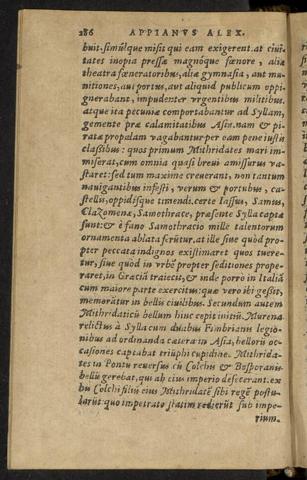 286 APPIANVS ALEX.
buit. simulque misit qui eam exigerent. at ciui-
tates inopia pressæ magnóque fœnore, aliæ
theatra fœneratoribus, aliæ gymnasia, aut mu-
nitiones, aut portus, aut aliquid publicum oppi-
gnerabant, impudenter vrgentibus militibus.
atque ita pecunia comportabantur ad Syllam,
gemente præ calamitatibus Asia. nam & pi-
ratæ propalam vagabantur per eam pene iustis
classibus: quos primum Mithridates mari im-
miserat, cum omnia quasi breui amissurus va-
staret: sed tum maxime creuerant, non tantum
nauigantibus infesti, verum & portubus, ca-
stellis, oppidisque timendi. certe Iassus, Samus,
Clazomena, Samothrace, præsente Sylla captæ
sunt: & è fano Samothracio mille talentorum
ornamenta ablata ferūtur. at ille siue quòd pro-
pter peccata indignos existimaret quos tuere-
tur, siue quòd in vrbē propter seditiones prope-
raret, in Græciā traiecit, & inde porro in Italiā
cum maiore parte exercitus: quæ vero ibi gessit,
memorātur in bellis ciuilibus. Secundum autem
Mithridaticū bellum hinc cepit initiū. Murena
relictus à Sylla cum duabus Fimbrianis legio-
nibus ad ordinanda cætera in Asia, bellorū oc-
casiones captabat triūphi cupidine. Mithrida-
tes in Pontū reuersus cū Colchis & Bosporanis
bellū gerebat, qui ab eius imperio defecerant. ex
his Colchi filiū eius Mithridatē sibi regē postu-
larūt quo impetrato statim redierūt sub impe-
rium.